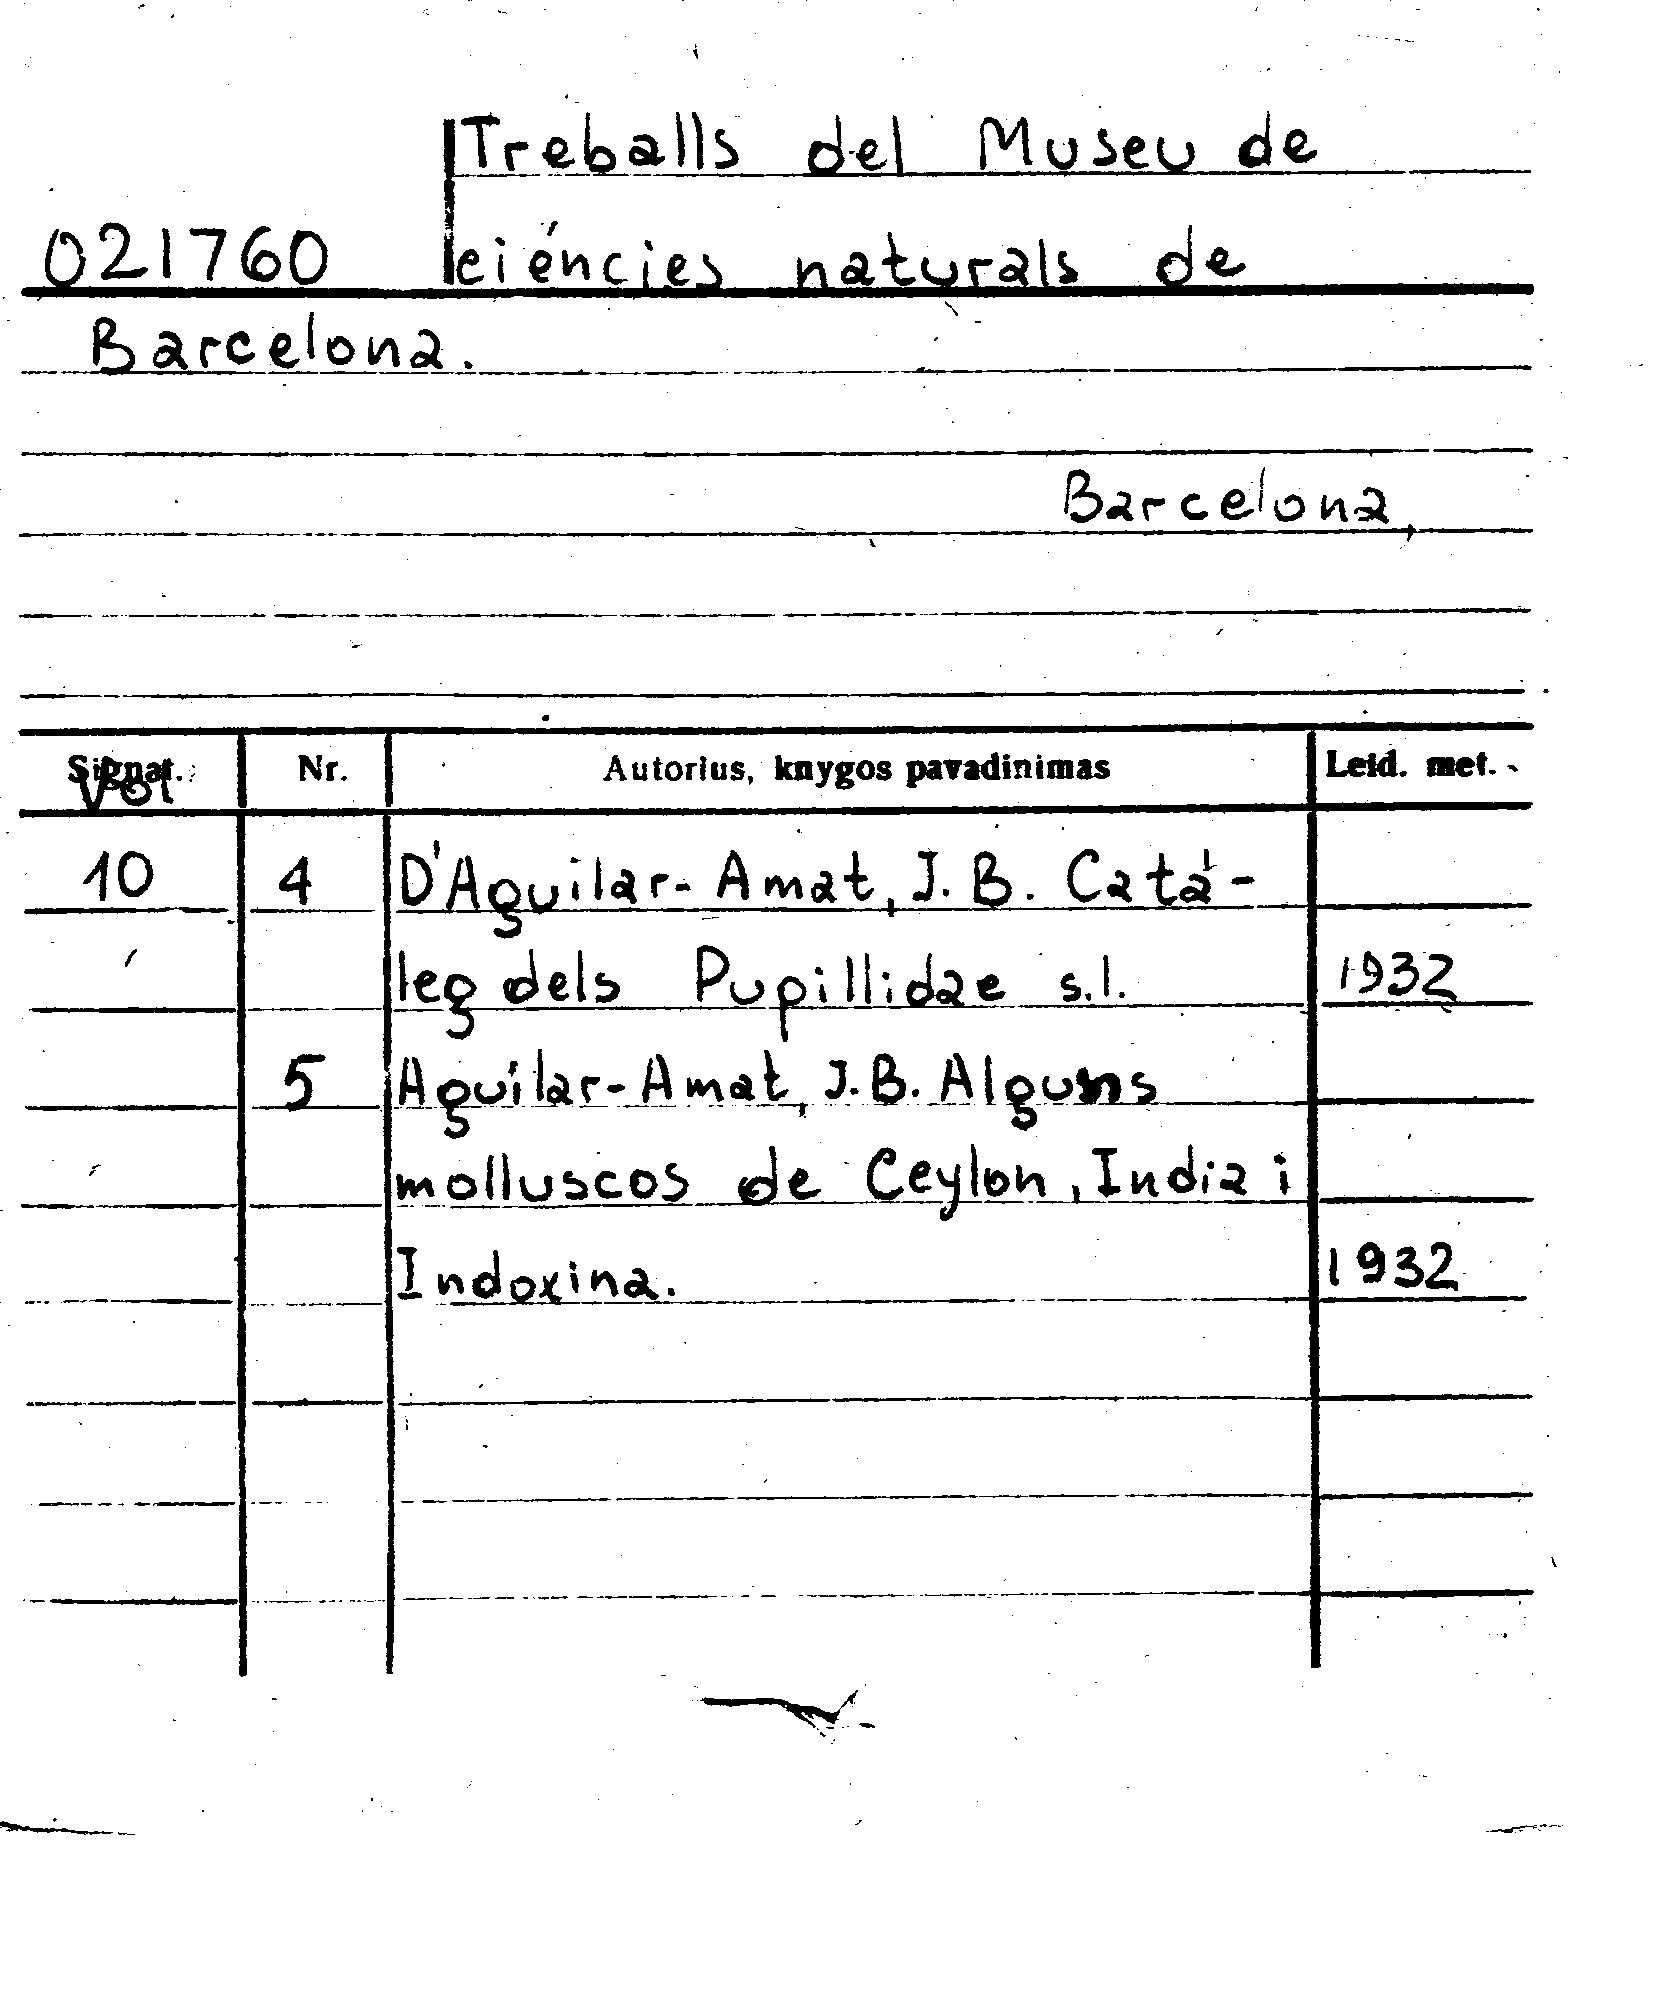 Treballs del Museu de
021760 eiéncies naturals de
Barcelona.
Barcelona,
Signat. Vol Nr. Autorius, knygos pavadinimas Leid. met.
10 4 D'Aguilar-Amat, J. B. Catá-
leg dels Pupillidae s.l. 1932
5 Aguilar-Amat, J. B. Alguns
molluscos de Ceylon, India i
Indoxina. 1932